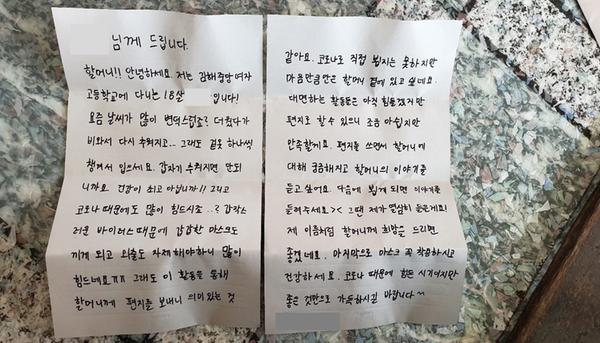 님께 드립니다.
할머니!! 안녕하세요. 저는 김해중앙여자
고등학교에 다니는 18살 입니다!
요즘 날씨가 많이 변덕스럽죠? 더웠다가
비와서 다시 추워지고... 그래도 겉옷 하나씩
챙겨서 입으세요. 갑자기 추워지면 안되
니까요. 건강이 최고 아닙니까!! 그리고
코로나 때문에도 많이 힘드시죠..? 갑작스
러운 바이러스 때문에 갑갑한 마스크도
끼게 되고 외출도 자제해야하니 많이
힘드네요ㅠㅠ 그래도 이 활동을 통해
할머니께 편지를 보내니 의미있는 것
같아요. 코로나로 직접 뵙지는 못하지만
마음만큼만은 할머니 곁에 있고 싶네요.
대면하는 활동들은 아직 힘들겠지만
편지로 할 수 있으니 조금 아쉽지만
만족할게요. 편지를 쓰면서 할머니에
대해 궁금해지고 할머니의 이야기를
듣고 싶어요. 다음에 뵙게 되면 이야기를
들려주세요>< 그땐 제가 열심히 들을게요!
제 이름처럼 할머니께 희망을 드리면
좋겠네요. 마지막으로 마스크 꼭 착용하시고
건강하세요. 코로나 때문에 힘든 시기이지만
좋은 것만으로 가득하시길 바랍니다~